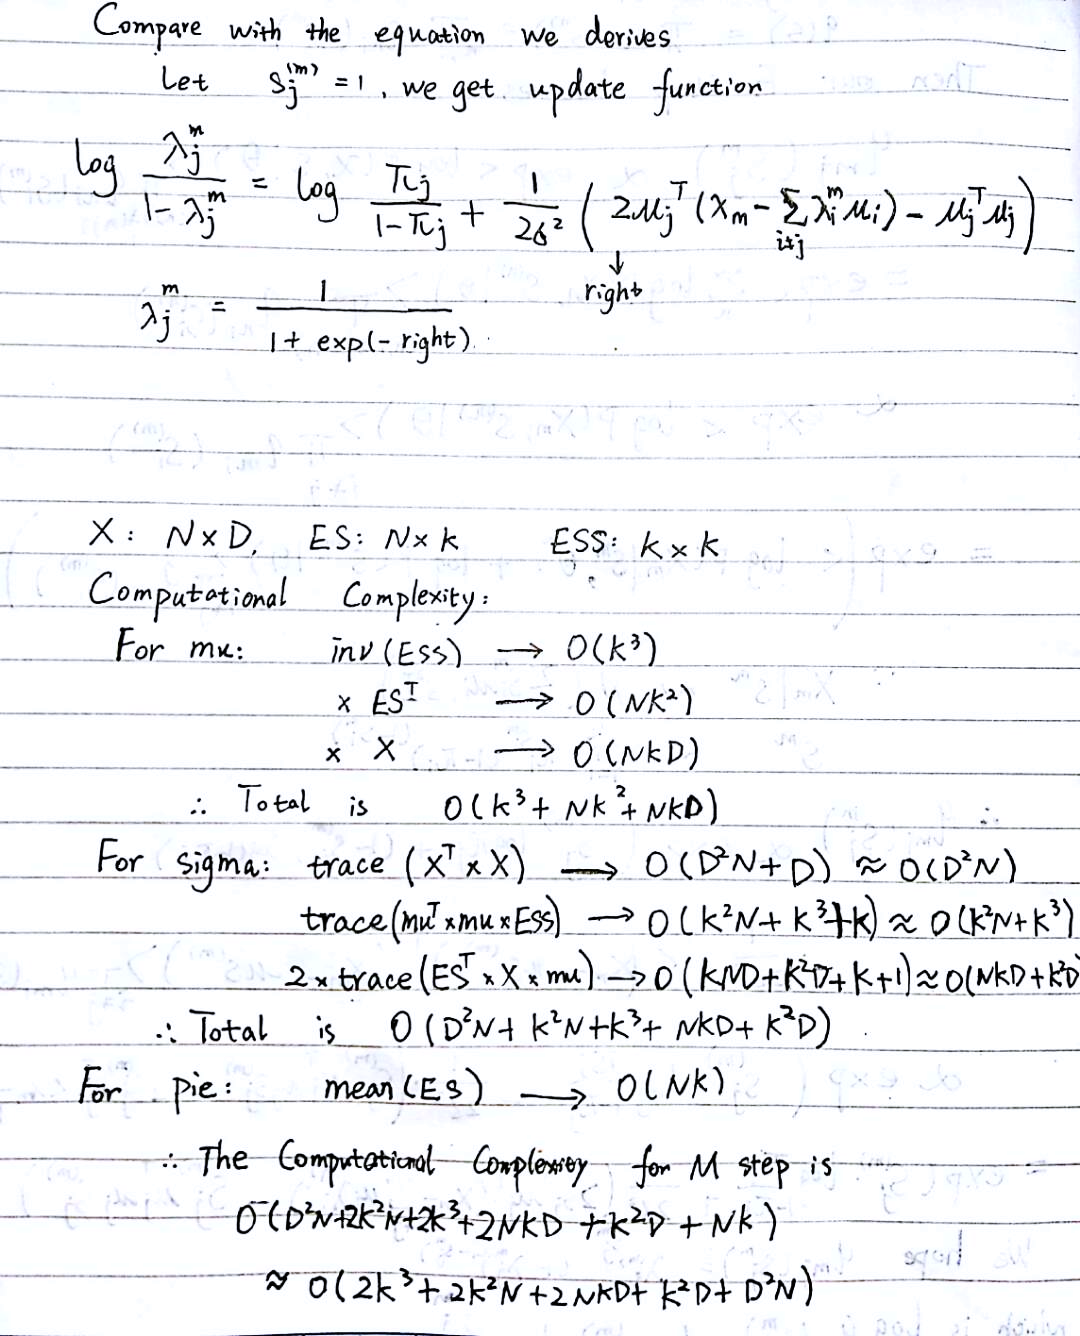 Compare with the equation we derives
Let S_j^(m) = 1, we get update function
log λ_j^m / (1-λ_j^m) = log π_j / (1-π_j) + 1/(2σ²) ( 2μ_j^T (x_m - Σ_{i≠j} λ_i^m μ_i) - μ_j^T μ_j )
↓
right
λ_j^m = 1 / (1 + exp(-right)).
X: N×D, ES: N×k ESS: k×k
Computational Complexity:
For mu: inv(ESS) → O(k³)
× ES^T → O(Nk²)
× X → O(NkD)
∴ Total is O(k³ + Nk² + NKD)
For sigma: trace (X^T × X) → O(D²N + D) ≈ O(D²N)
trace(mu^T × mu × ESS) → O(k²N + k³ + k) ≈ O(k²N + k³)
2 × trace(ES^T × X × mu) → O(KND + K²D + K + 1) ≈ O(NKD + K²D
∴ Total is O(D²N + k²N + k³ + NKD + K²D)
For pie: mean(ES) → O(Nk)
∴ The Computational Complexity for M step is
O(D²N + 2k²N + 2k³ + 2NKD + k²D + NK)
≈ O(2k³ + 2k²N + 2NKD + K²D + D²N)